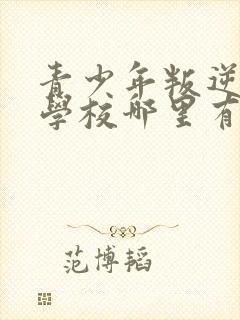 青少年叛逆
學校哪里有
范博韬